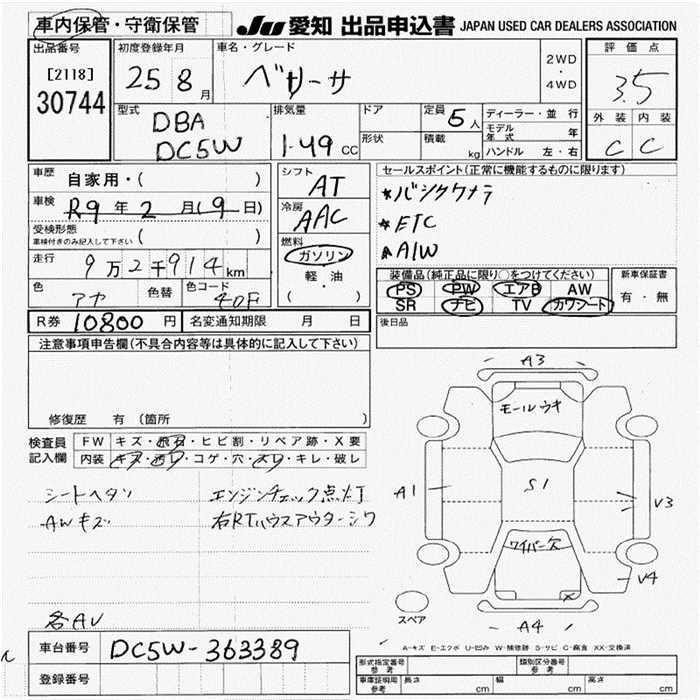 車内保管・守衛保管
JU 愛知 出品申込書 JAPAN USED CAR DEALERS ASSOCIATION
出品番号
[2118]
30744
初度登録年月
25 8月
車名・グレード
ベリーサ
2WD
・
4WD
評価点
3.5
外装 内装
C C
型式
DBA
DC5W
排気量
1.49 CC
ドア
形状
定員 5人
積載 kg
ディーラー・並行
モデル年式 年
ハンドル 左・右
車歴 自家用・( )
車検 R9年2月(9日)
受検形態
車検付きのみ記入して下さい ( )
走行 9万2千914km
色 アカ 色替
色コード 40F
シフト
AT
冷房
AAC
燃料
ガソリン
・
軽・油
( )
セールスポイント(正常に機能するものに限ります)
ETC
A/W
装備品(純正品に限り○をつけてください)
PS PW エアB AW
SR ナビ TV カワシート
新車保証書
有・無
R券 10800円
名変通知期限 月 日
後日品
注意事項申告欄(不具合内容等は具体的に記入して下さい)
修復歴 有(箇所 )
検査員記入欄
FW キズ・飛石・ヒビ割・リペア跡・X要
内装 キズ・汚レ・コゲ・穴・スレ・キレ・破レ
シートヘタリ エンジンチェック点灯
AWキズ 右RTハウスアウターシワ
各AU
A3
モールウキ
A1
S1
V3
ワイパー欠
V4
スペア
A4
A-キズ E-エクボ U-凹み W-補修跡 S-サビ C-腐食 XX-交換済
車台番号 DC5W-363389
登録番号
型式指定番号 参考
類別区分番号 参考
車庫証明用 参考
長さ cm
幅 cm
高さ cm